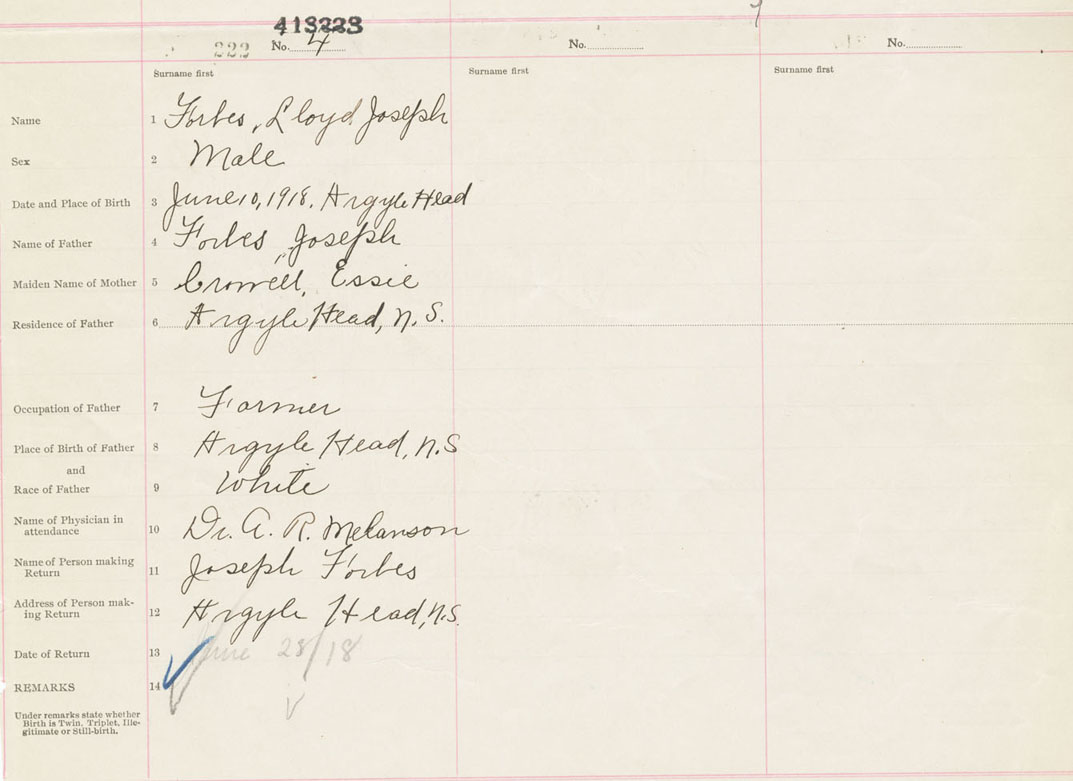 413223
222 No. 4 No. No.
Surname first Surname first Surname first
Name 1 Forbes, Lloyd Joseph
Sex 2 Male
Date and Place of Birth 3 June 10, 1918. Argyle Head
Name of Father 4 Forbes, Joseph
Maiden Name of Mother 5 Crowell, Essie
Residence of Father 6 Argyle Head, N.S.
Occupation of Father 7 Farmer
Place of Birth of Father 8 Argyle Head, N.S
and
Race of Father 9 White
Name of Physician in
attendance 10 Dr. A. R. Melanson
Name of Person making
Return 11 Joseph Forbes
Address of Person mak-
ing Return 12 Argyle Head, N.S.
Date of Return 13 June 28/18
REMARKS 14
Under remarks state whether
Birth is Twin, Triplet, Ille-
gitimate or Still-birth.